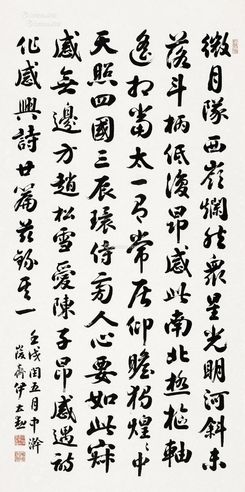 微月隊西嶺爛然衆星光明河斜未
落斗柄低復昂感此南北極樞軸
遙相當太一有常居仰瞻獨煌煌中
天照四國三辰環侍旁人心要如此寂
感無邊方趙松雪愛陳子昂感遇詩
作感興詩廿篇茲錄其一
壬戌閏五月中澣
峻齋伊立勳